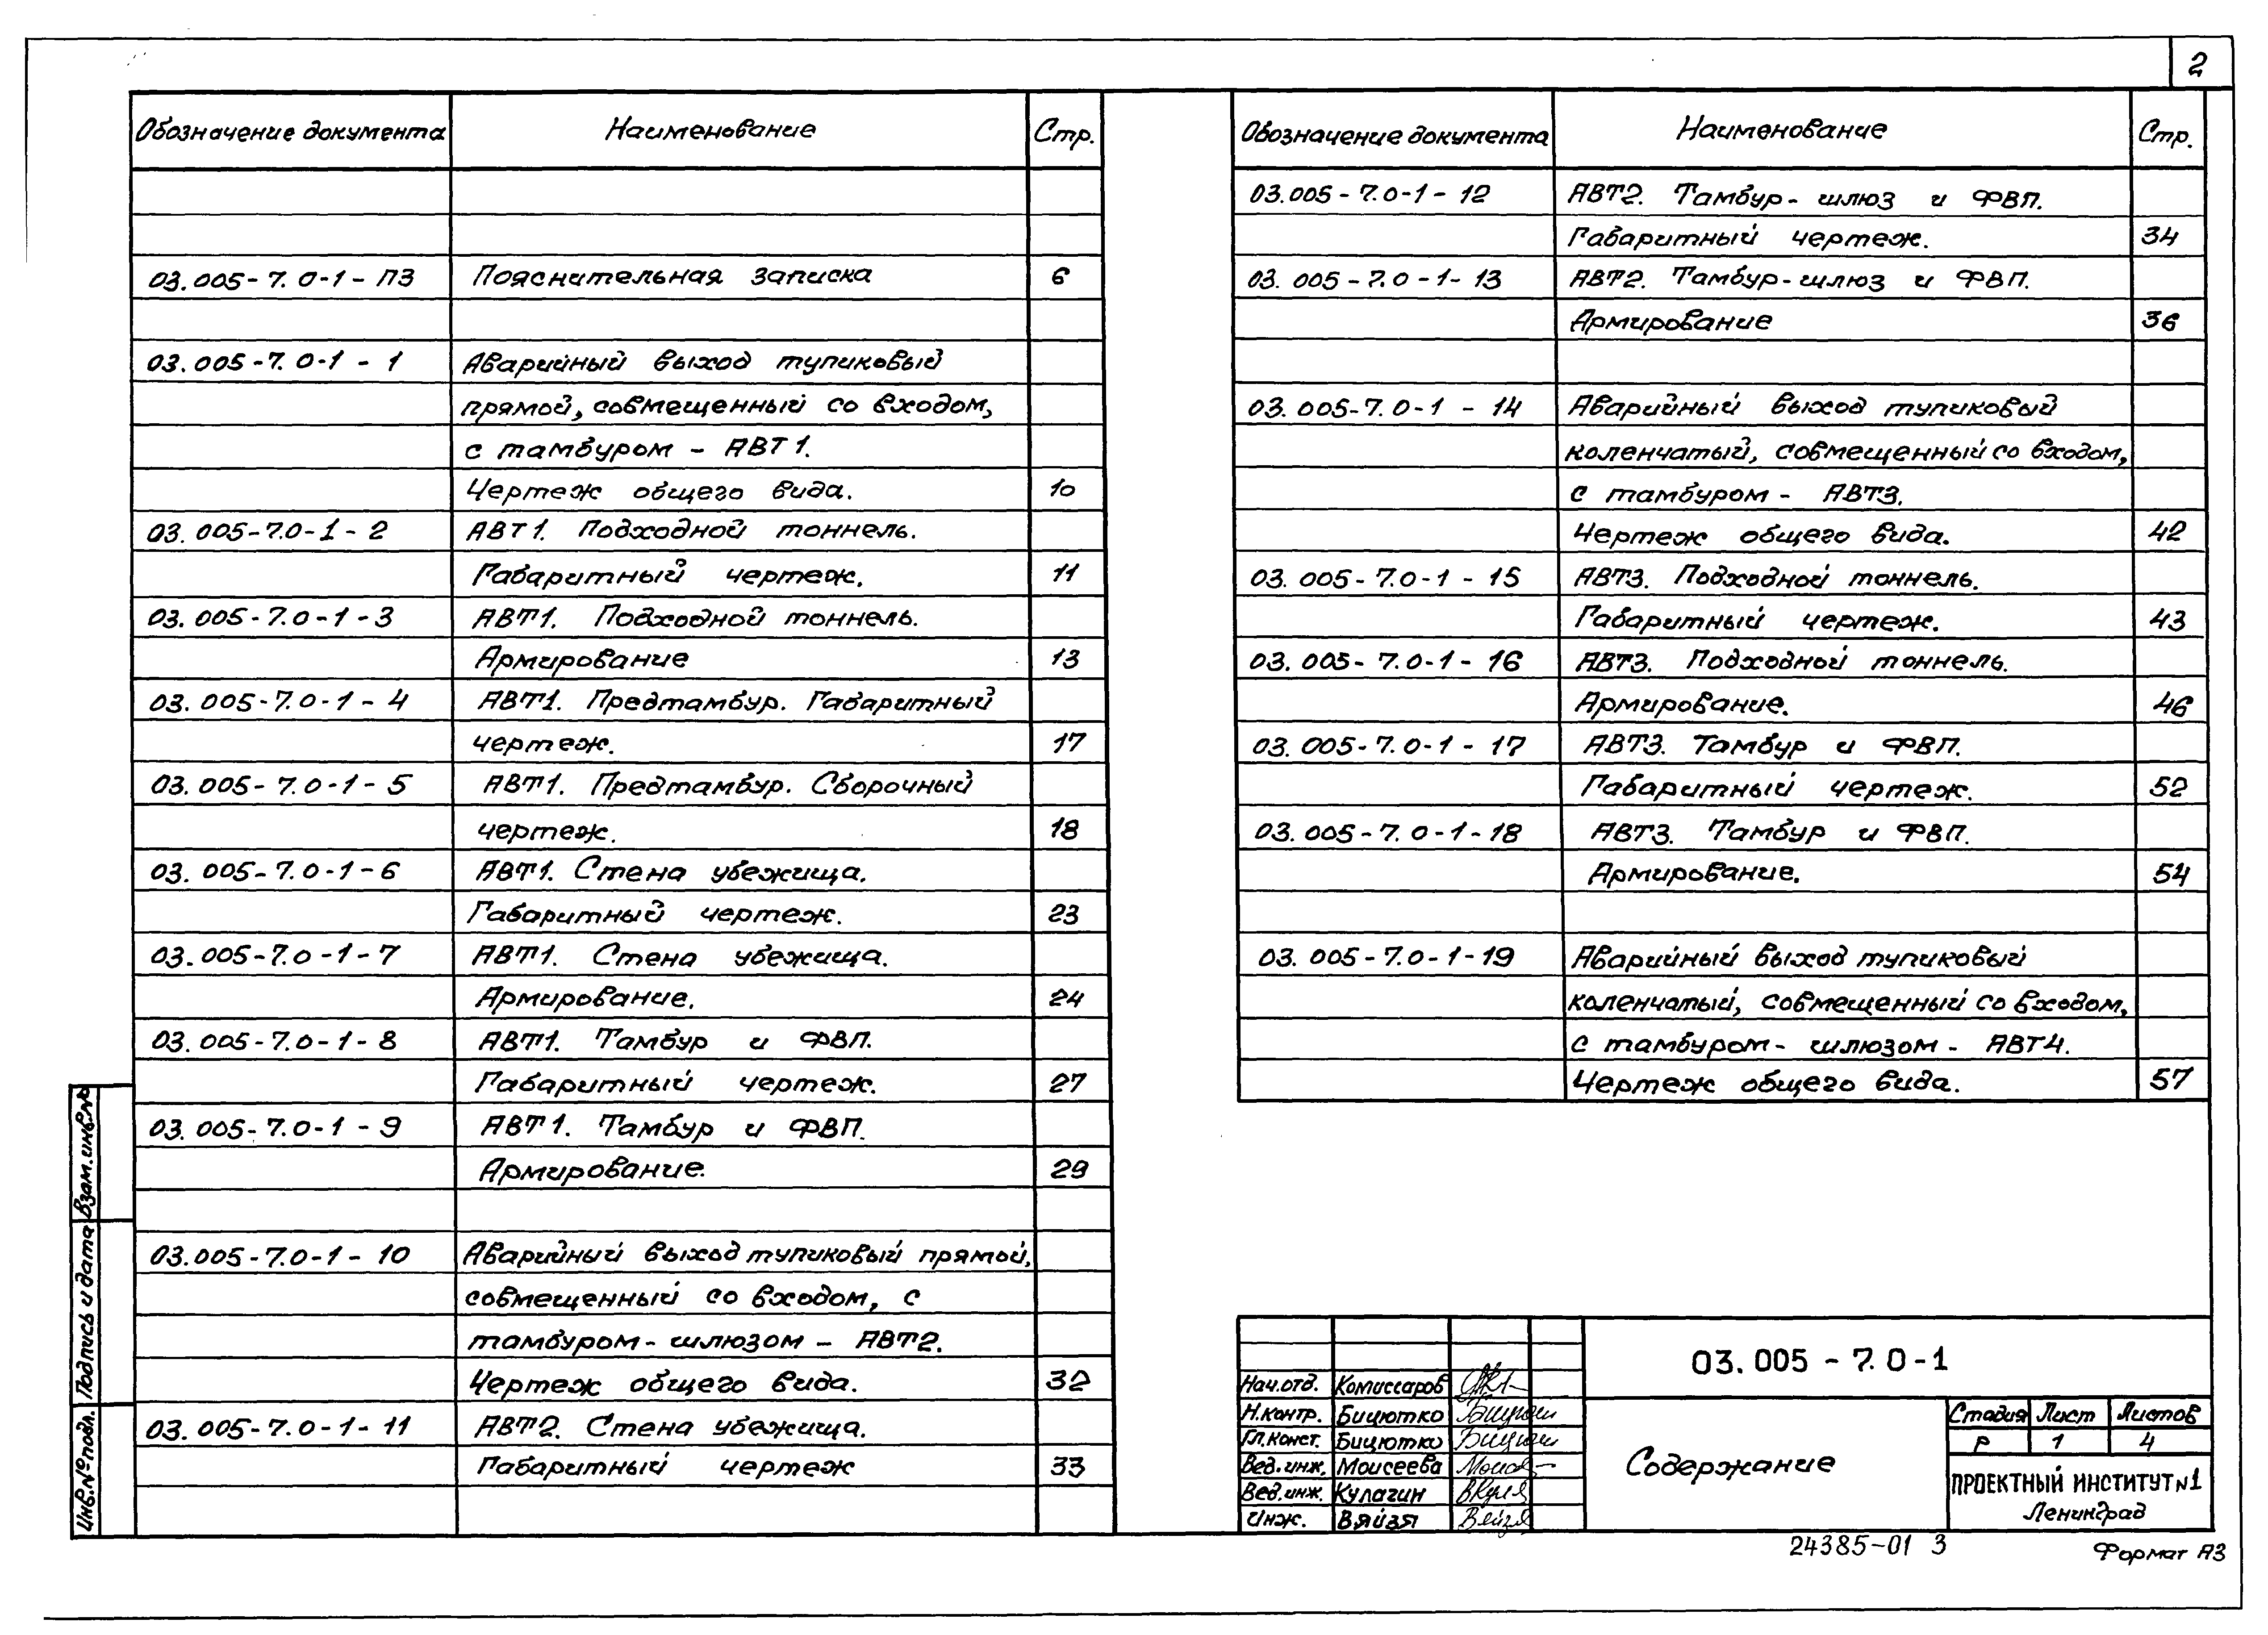 2
Обозначение документа Наименование Стр.
03.005-7.0-1-ПЗ Пояснительная записка 6
03.005-7.0-1-1 Аварийный выход тупиковый
прямой, совмещенный со входом,
с тамбуром - АВТ1.
Чертеж общего вида. 10
03.005-7.0-1-2 АВТ1. Подходной тоннель.
Габаритный чертеж. 11
03.005-7.0-1-3 АВТ1. Подходной тоннель.
Армирование 13
03.005-7.0-1-4 АВТ1. Предтамбур. Габаритный
чертеж. 17
03.005-7.0-1-5 АВТ1. Предтамбур. Сборочный
чертеж. 18
03.005-7.0-1-6 АВТ1. Стена убежища.
Габаритный чертеж. 23
03.005-7.0-1-7 АВТ1. Стена убежища.
Армирование. 24
03.005-7.0-1-8 АВТ1. Тамбур и ФВП.
Габаритный чертеж. 27
03.005-7.0-1-9 АВТ1. Тамбур и ФВП.
Армирование. 29
03.005-7.0-1-10 Аварийный выход тупиковый прямой,
совмещенный со входом, с
тамбуром-шлюзом - АВТ2.
Чертеж общего вида. 32
03.005-7.0-1-11 АВТ2. Стена убежища.
Габаритный чертеж 33
Обозначение документа Наименование Стр.
03.005-7.0-1-12 АВТ2. Тамбур-шлюз и ФВП.
Габаритный чертеж. 34
03.005-7.0-1-13 АВТ2. Тамбур-шлюз и ФВП.
Армирование 36
03.005-7.0-1-14 Аварийный выход тупиковый
коленчатый, совмещенный со входом,
с тамбуром - АВТ3.
Чертеж общего вида. 42
03.005-7.0-1-15 АВТ3. Подходной тоннель.
Габаритный чертеж. 43
03.005-7.0-1-16 АВТ3. Подходной тоннель.
Армирование. 46
03.005-7.0-1-17 АВТ3. Тамбур и ФВП.
Габаритный чертеж. 52
03.005-7.0-1-18 АВТ3. Тамбур и ФВП.
Армирование. 54
03.005-7.0-1-19 Аварийный выход тупиковый
коленчатый, совмещенный со входом,
с тамбуром-шлюзом - АВТ4.
Чертеж общего вида. 57
Взам.инв.№
Подпись и дата
Инв.№ подл.
03.005-7.0-1
Нач.отд. Комиссаров
Н.контр. Бицютко Бицютко
Гл.конст. Бицютко Бицютко
Вед.инж. Моисеева
Вед.инж. Кулагин
Инж. Вяйзя
Содержание
Стадия Лист Листов
Р 1 4
ПРОЕКТНЫЙ ИНСТИТУТ №1
Ленинград
24385-01 3
Формат А3